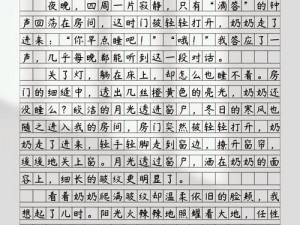 夜晚，四周一片寂静，只有“滴答”的钟
声回荡在房间，这时门被轻轻打开，奶奶走了
进来：“你早点睡吧！”“哦！”我答应了一
声，几乎每晚都能听到这一段对话。
关了灯，躺在床上，却怎么也睡不着。房
门的细缝中，透出几丝橙黄色的亮光，奶奶还
没睡么？皎洁的月光透过窗户，冬日的寒风也
随之进入我的房间，房门突然被轻轻打开，奶
奶走了进来，轻手轻脚走到窗边，撩开窗帘，
缓缓地关上窗。月光透过窗户，洒在奶奶的面
容上，细长的皱纹更明显了。
看着奶奶爬满皱纹却温柔依旧的脸颊，我
想起了儿时。阳光火辣辣地照耀着大地，任性